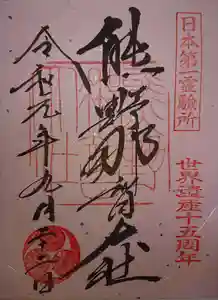 日本第一霊験所
世界遺産十五周年
熊野那智大社
令和元年九月日